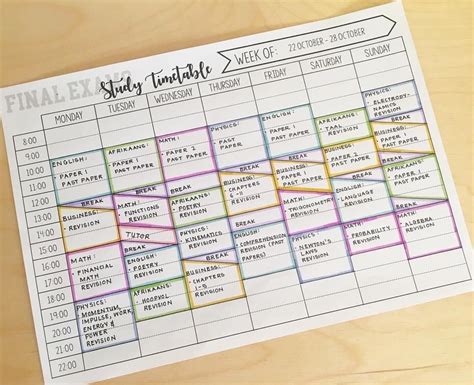 FINAL EXAMS
Study timetable
WEEK OF: 22 OCTOBER - 28 OCTOBER
MONDAY TUESDAY WEDNESDAY THURSDAY FRIDAY SATURDAY SUNDAY
8:00
9:00
10:00
11:00
12:00
13:00
14:00
15:00
16:00
17:00
18:00
19:00
20:00
21:00
22:00
ENGLISH:
• PAPER 1
PAST PAPER
BREAK
BUSINESS:
• REVISION
MATH:
• FINANCIAL
MATH
REVISION
PHYSICS:
• MOMENTUM,
IMPULSE, WORK,
ENERGY &
POWER
REVISION
AFRIKAANS:
• PAPER 1
PAST PAPER
BREAK
MATH:
• FUNCTIONS
REVISION
TUTOR
BREAK
ENGLISH:
• POETRY
REVISION
AFRIKAANS:
REVISION
MATH:
• PAPER 2
PAST PAPER
BREAK
AFRIKAANS:
• POETRY
REVISION
PHYSICS:
• KINEMATICS
REVISION
BREAK
BUSINESS:
• CHAPTERS
1-5
REVISION
PHYSICS:
• PAPER 1
PAST PAPER
BREAK
BUSINESS:
• CHAPTERS
REVISION
BREAK
ENGLISH:
• COMPREHENSION
REVISION
(PAST PAPERS)
ENGLISH:
• PAPER 1
PAST PAPER
BREAK
MATH:
• TRIGONOMETRY
REVISION
BREAK
PHYSICS:
• NEWTON'S
LAWS
REVISION
AFRIKAANS:
• TAAL
REVISION
BREAK
BUSINESS:
• PAPER 1
PAST PAPER
ENGLISH:
• LANGUAGE
REVISION
BREAK
MATH:
• PROBABILITY
REVISION
PHYSICS:
• ELECTRODY-
NAMICS
REVISION
BREAK
AFRIKAANS:
PAST PAPERS
BREAK
MATH:
• ALGEBRA
REVISION